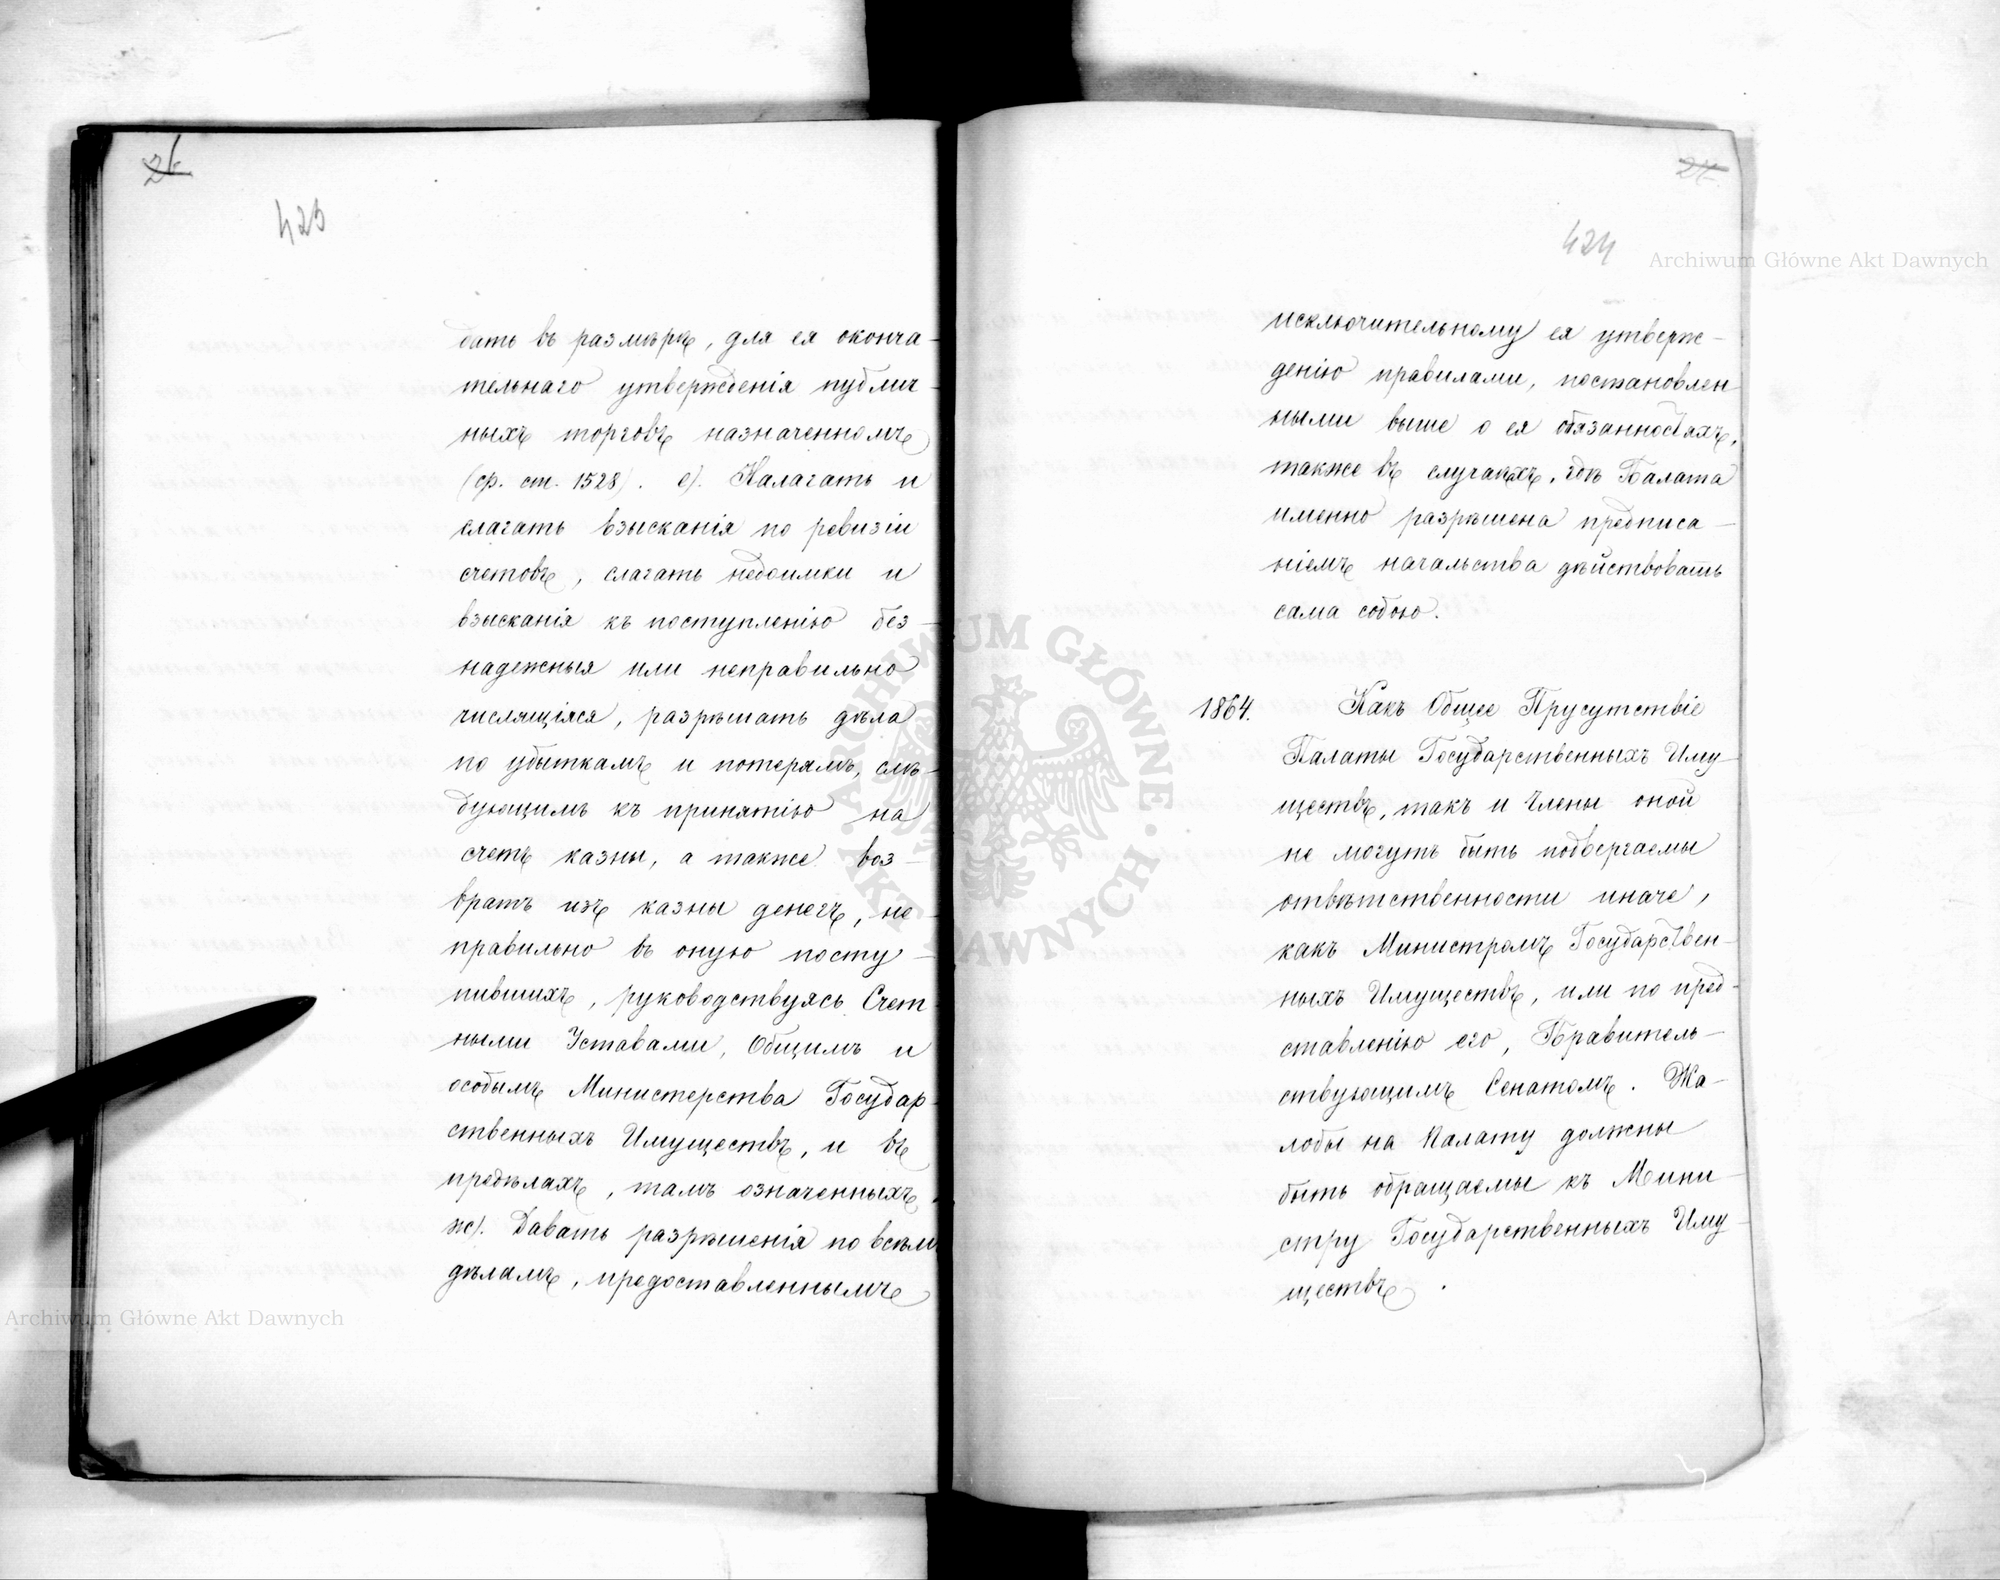 423
дать въ размѣрѣ, для ея оконча-
тельнаго утвержденія публич-
ныхъ торговъ назначенномъ
(ср. ст. 1528). е). Налагать и
слагать взысканія по ревизіи
счетовъ, слагать недоимки и
взысканія къ поступленію без-
надежныя или неправильно
числящіяся, разрѣшать дѣла
по убыткамъ и потерямъ, слѣ-
дующимъ къ принятію на
счетъ казны, а также воз-
вратъ изъ казны денегъ, не-
правильно въ оную посту-
пившихъ, руководствуясь Счет-
ными Уставами, Общимъ и
особымъ Министерства Государ-
ственныхъ Имуществъ, и въ
предѣлахъ, тамъ означенныхъ.
ж). Давать разрѣшенія по всѣмъ
дѣламъ, предоставленнымъ
424
Archiwum Główne Akt Dawnych
исключительному ея утверж-
денію правилами, постановлен
ными выше о ея обязанностяхъ,
также въ случаяхъ, гдѣ Палата
именно разрѣшена предписа-
ніемъ начальства дѣйствовать
сама собою.
1864. Какъ Общее Прусутствіе
Палаты Государственныхъ Иму-
ществъ, такъ и Члены оной
не могутъ быть подвергаемы
отвѣтственности иначе,
какъ Министромъ Государствен-
ныхъ Имуществъ, или по пред-
ставленію его, Правитель-
ствующимъ Сенатомъ. Жа-
лобы на Палату должны
быть обращаемы къ Мини-
стру Государственныхъ Иму-
ществъ.
ARCHIWUM GŁÓWNE AKT DAWNYCH
Archiwum Główne Akt Dawnych